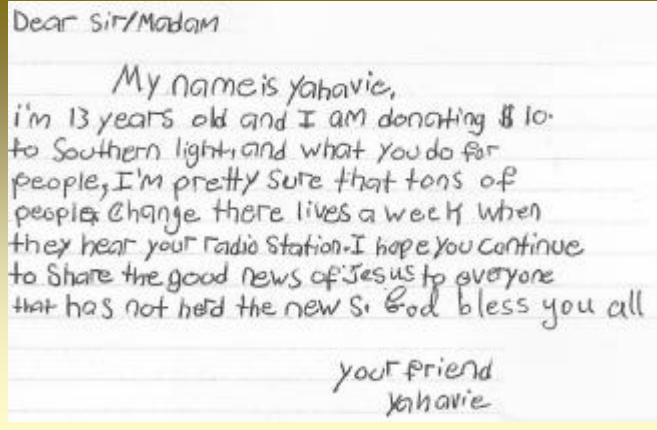 Dear Sir/Madam
My name is Yahavie,
i'm 13 years old and I am donating $ 10.
to Southern light, and what you do for
people, I'm pretty sure that tons of
people Change there lives a week when
they hear your radio Station. I hope you continue
to Share the good news of Jesus to everyone
that has not herd the news. God bless you all
your friend
Yahavie